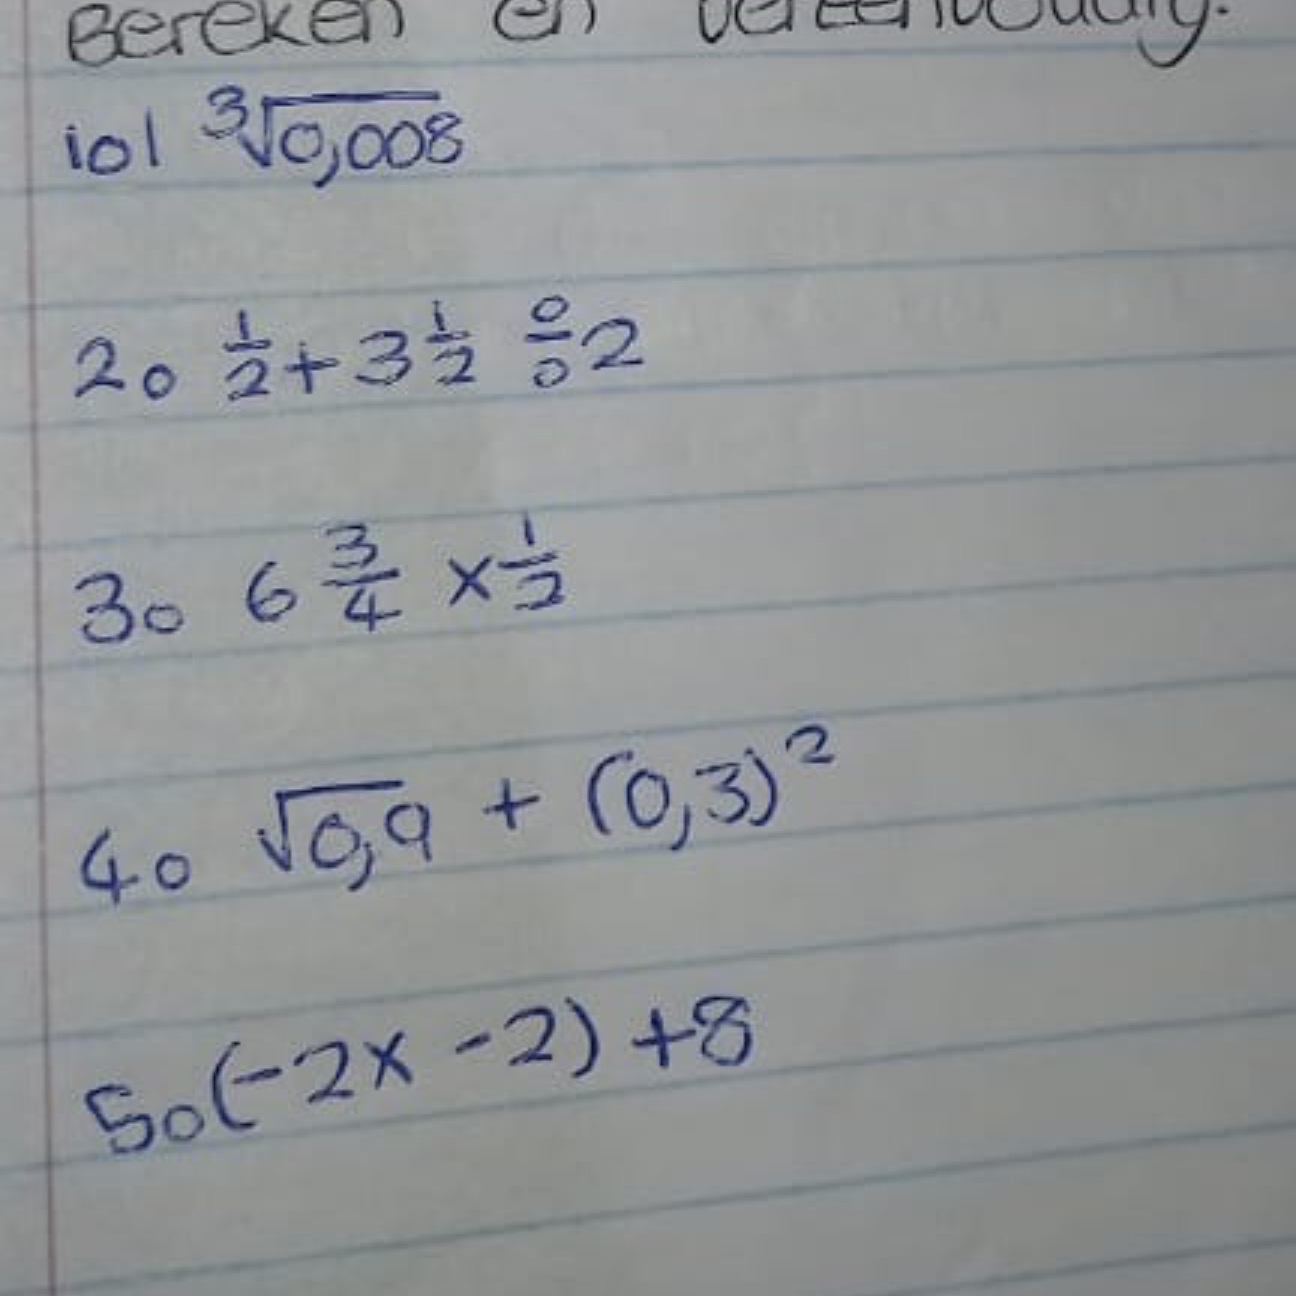 Bereken en vereenvoudig.
1.1 ∛0,008
2. 1/2 + 3 1/2 ÷ 2
3. 6 3/4 × 1/2
4. √0,9 + (0,3)²
5. (-2x - 2) + 8